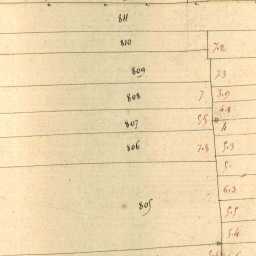 811
810
7.2
809
73
808
7
3.9
4.8
807
5.5
4
806
7.8
5.3
5.
6.2
805
5.5
5.4